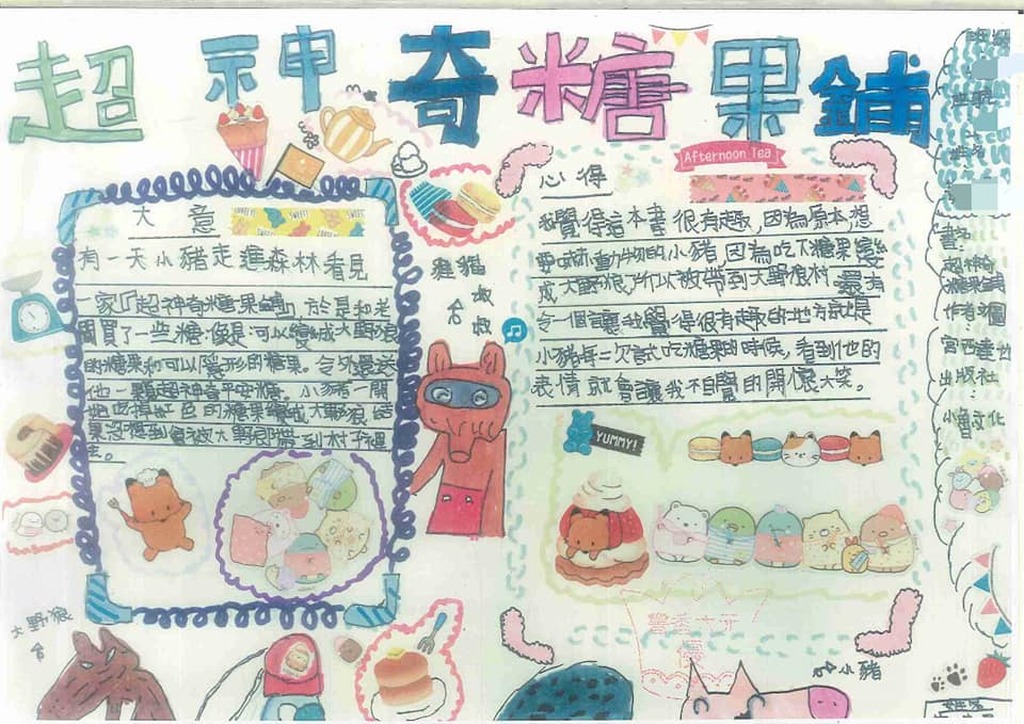 超神奇糖果鋪
Afternoon Tea
大意
有一天小豬走進森林看見
一家『超神奇糖果鋪』,於是和老
闆買了一些糖,像是:可以變成大野狼
的糖果和可以隱形的糖果。令外還送
他一顆超神奇平安糖。小豬一開
紅色的糖果變成大野狼結
果沒想到會被大野狼帶到村子裡
去。
心得
我覺得這本書很有趣,因為原本想
動物的小豬,因為吃下糖果變
成大野狼,所以被帶到大野狼村。最有
令一個讓我覺得很有趣的地方就是
小豬每一次試吃糖果的時候,看到他的
表情就會讓我不自覺的開懷大笑。
狸貓
叔叔
YUMMY!
書名:
超神奇
糖果鋪
作者:圖
宮西達也
出版社
小魯文化
大野狼
小豬